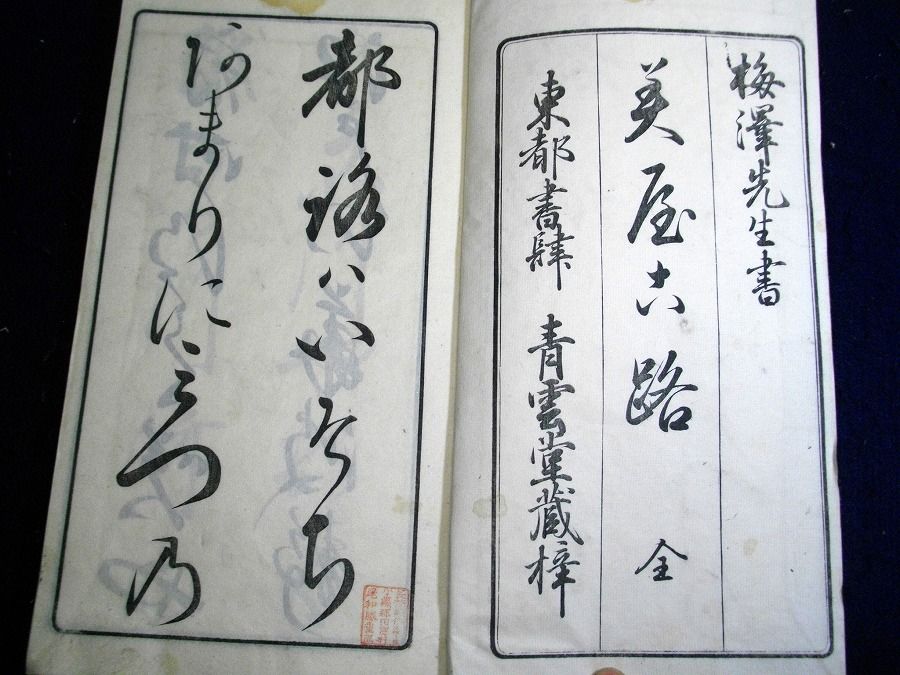 梅澤先生書
美屋古路 全
東都書肆 青雲堂蔵梓
都路ハいそち
阿まりにミつ乃